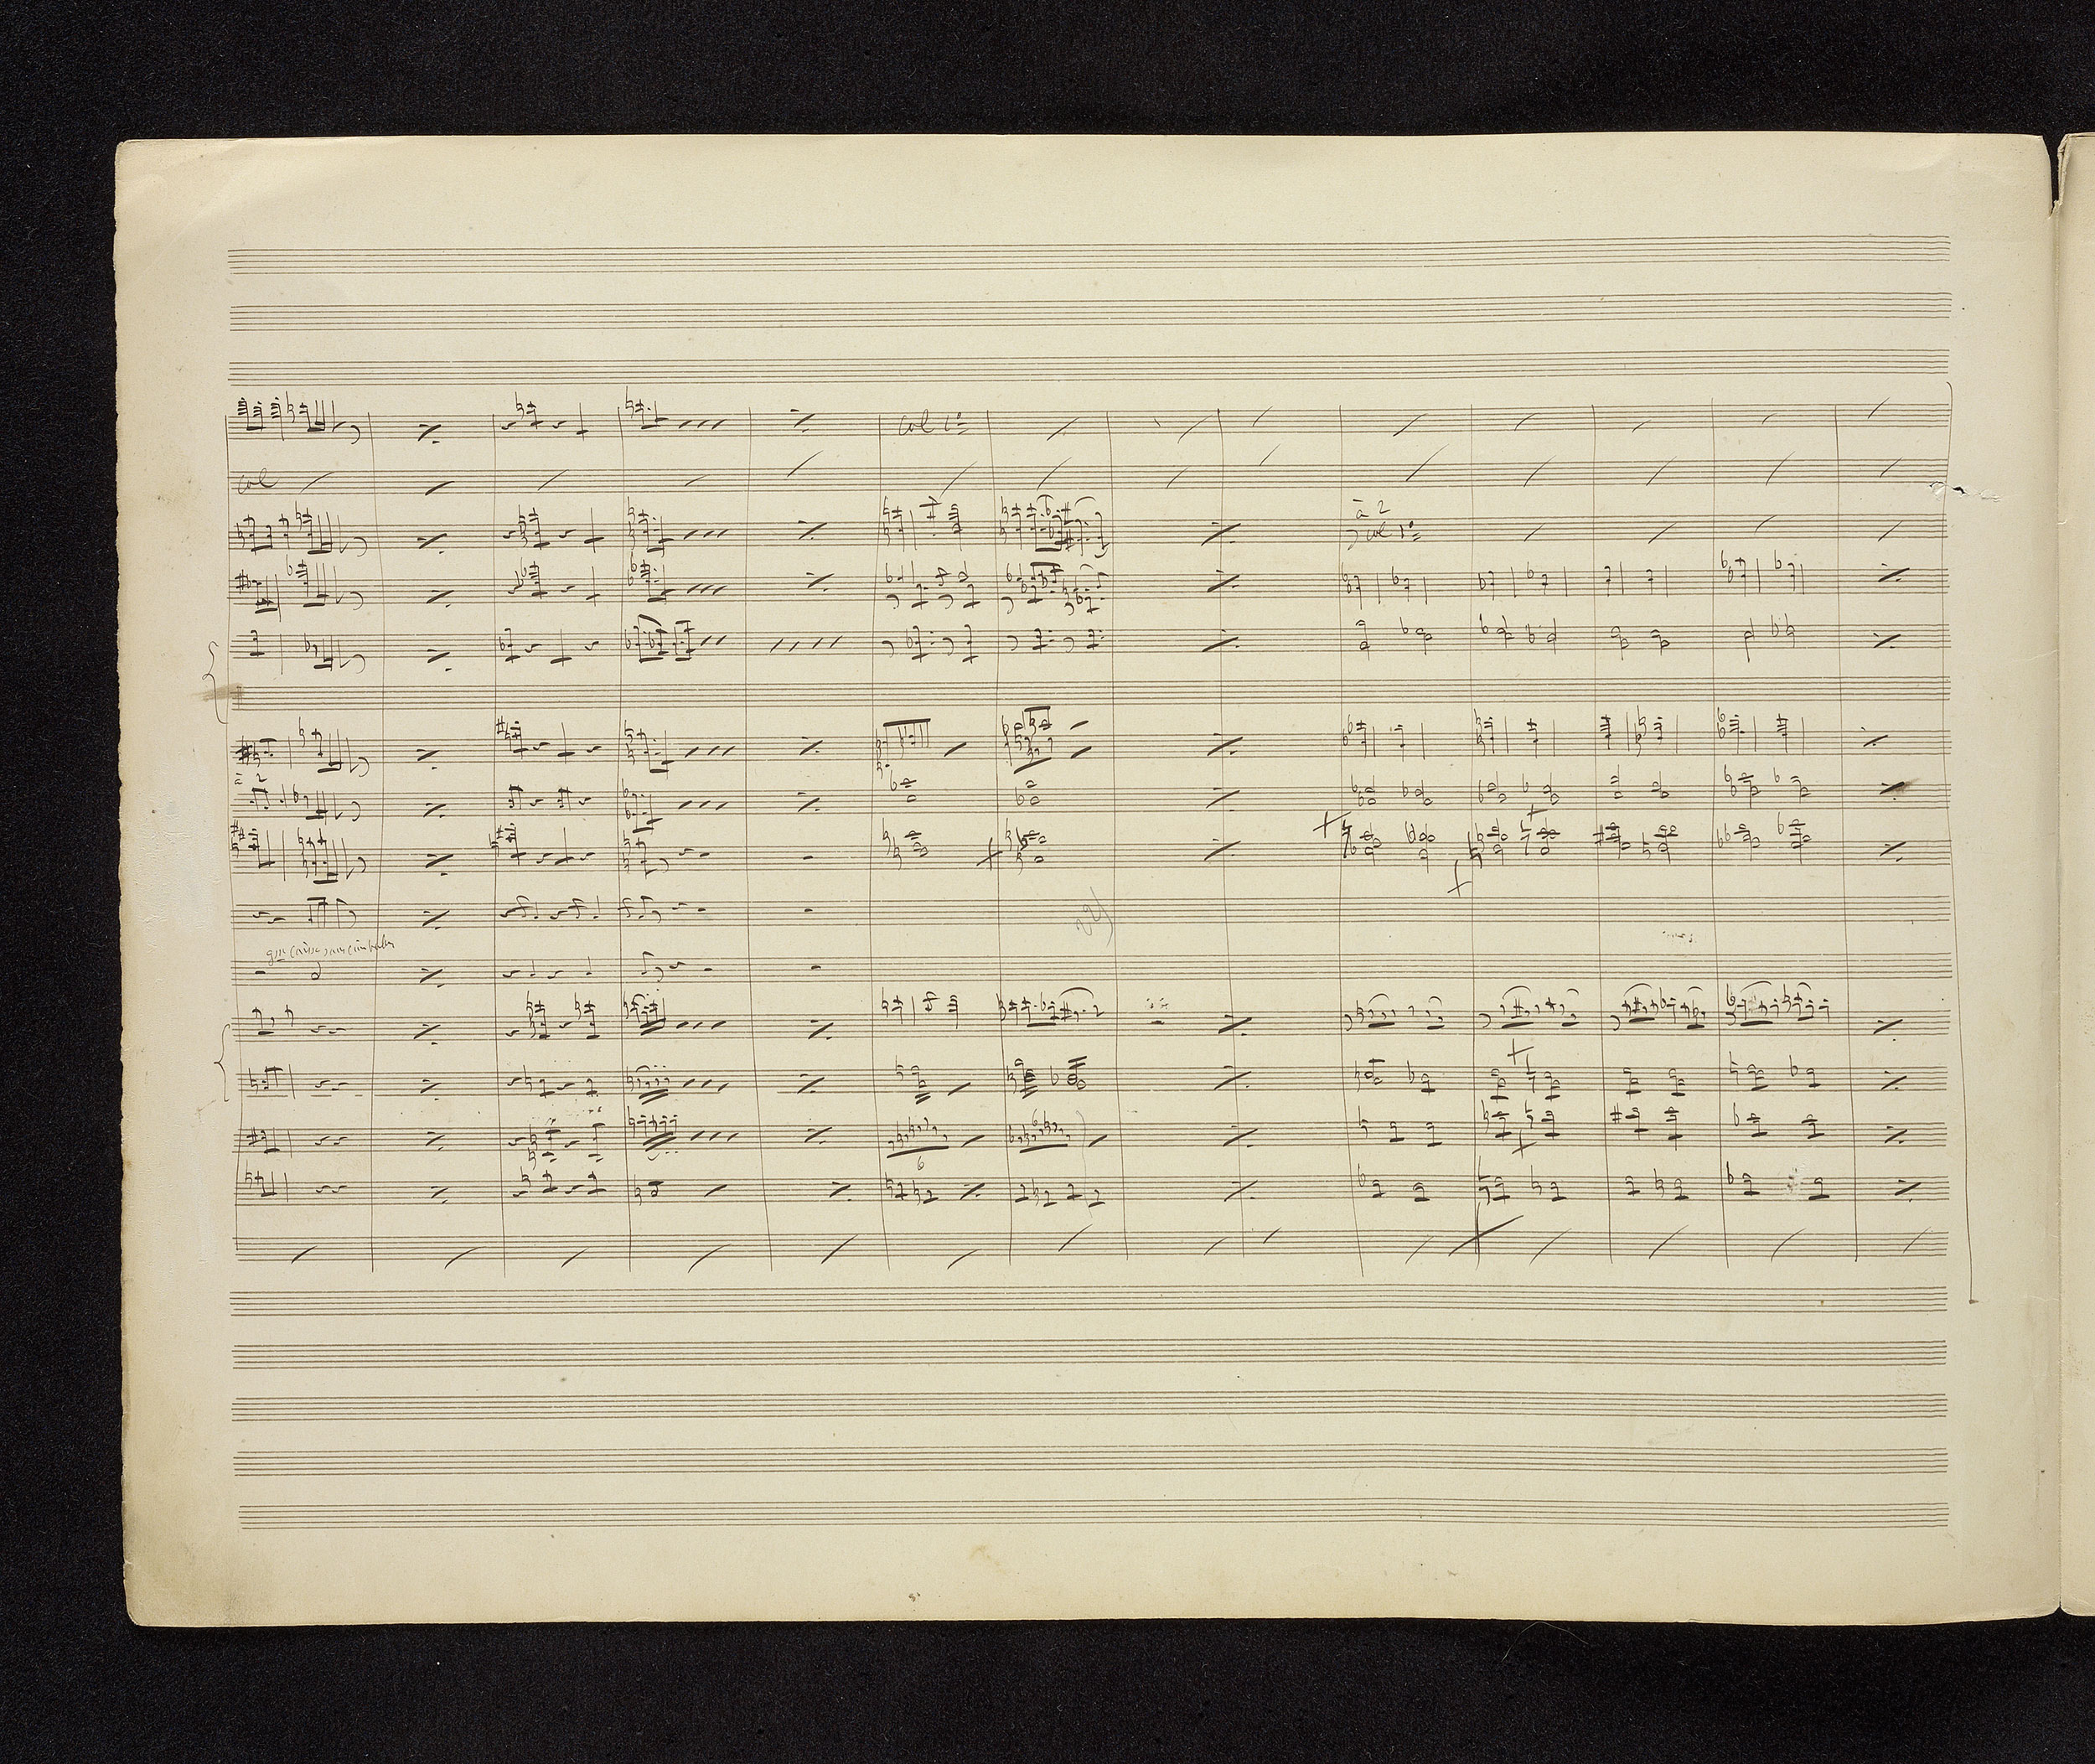 col 1º
col
à 2
col 1º
à 2
gsse caisse sans cimbales
6
6